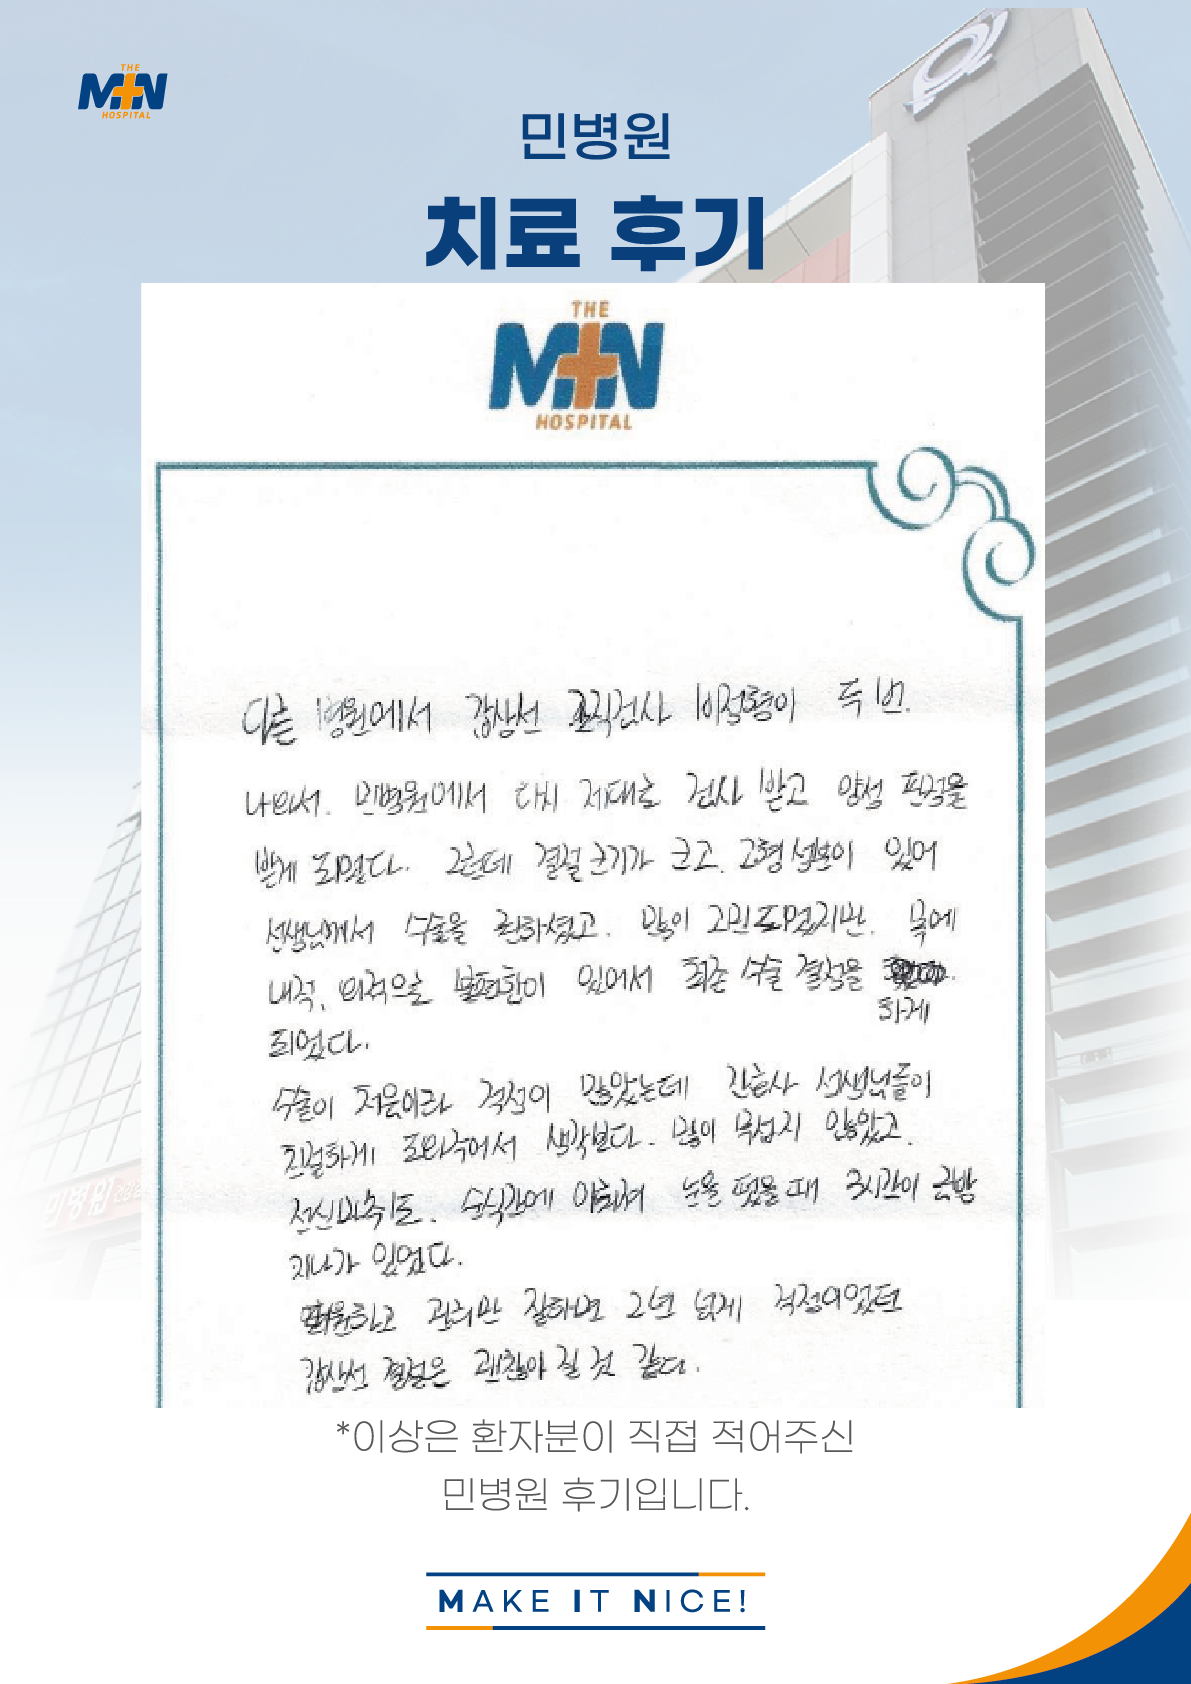 THE
MIN
HOSPITAL
민병원
치료 후기
THE
MIN
HOSPITAL
다른 병원에서 갑상선 조직검사 비정형이 두 번.
나와서. 민병원에서 다시 제대로 검사 받고 양성 판정을
받게 되었다. 그런데 결절 크기가 크고. 고형 성분이 있어
선생님께서 수술을 권하셨고. 많이 고민되었지만. 목에
내적, 외적으로 불편함이 있어서 최종 수술 결정을
하게
되었다.
수술이 처음이라 걱정이 많았는데 간호사 선생님들이
친절하게 도와주어서 생각보다. 많이 무섭지 않았고.
전신마취도. 순식간에 이뤄져 눈을 떴을 때 3시간이 금방
지나가 있었다.
관리만 잘하면 2년 넘게 걱정이었던
갑상선 결절은 괜찮아 질 것 같다.
민병원
*이상은 환자분이 직접 적어주신
민병원 후기입니다.
MAKE IT NICE!